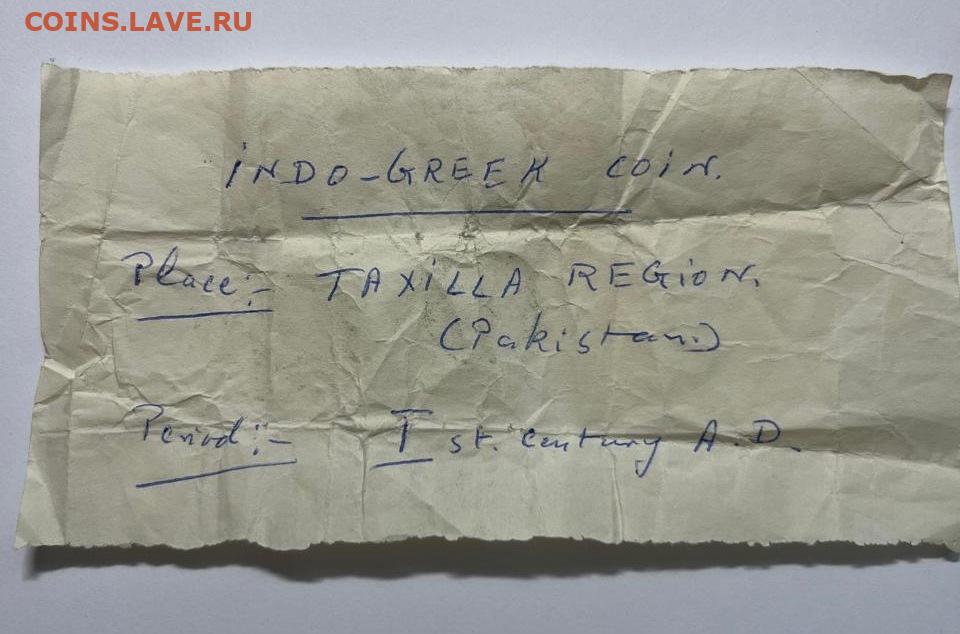 COINS.LAVE.RU
iNDO-GREEK COiN.
Place:- TAXiLLA REGiON.
(Pakistan.)
Period:- I st. century A.D.